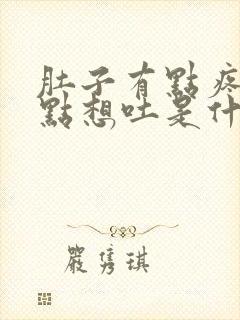 肚子有點疼
點想吐是什
嚴雋琪